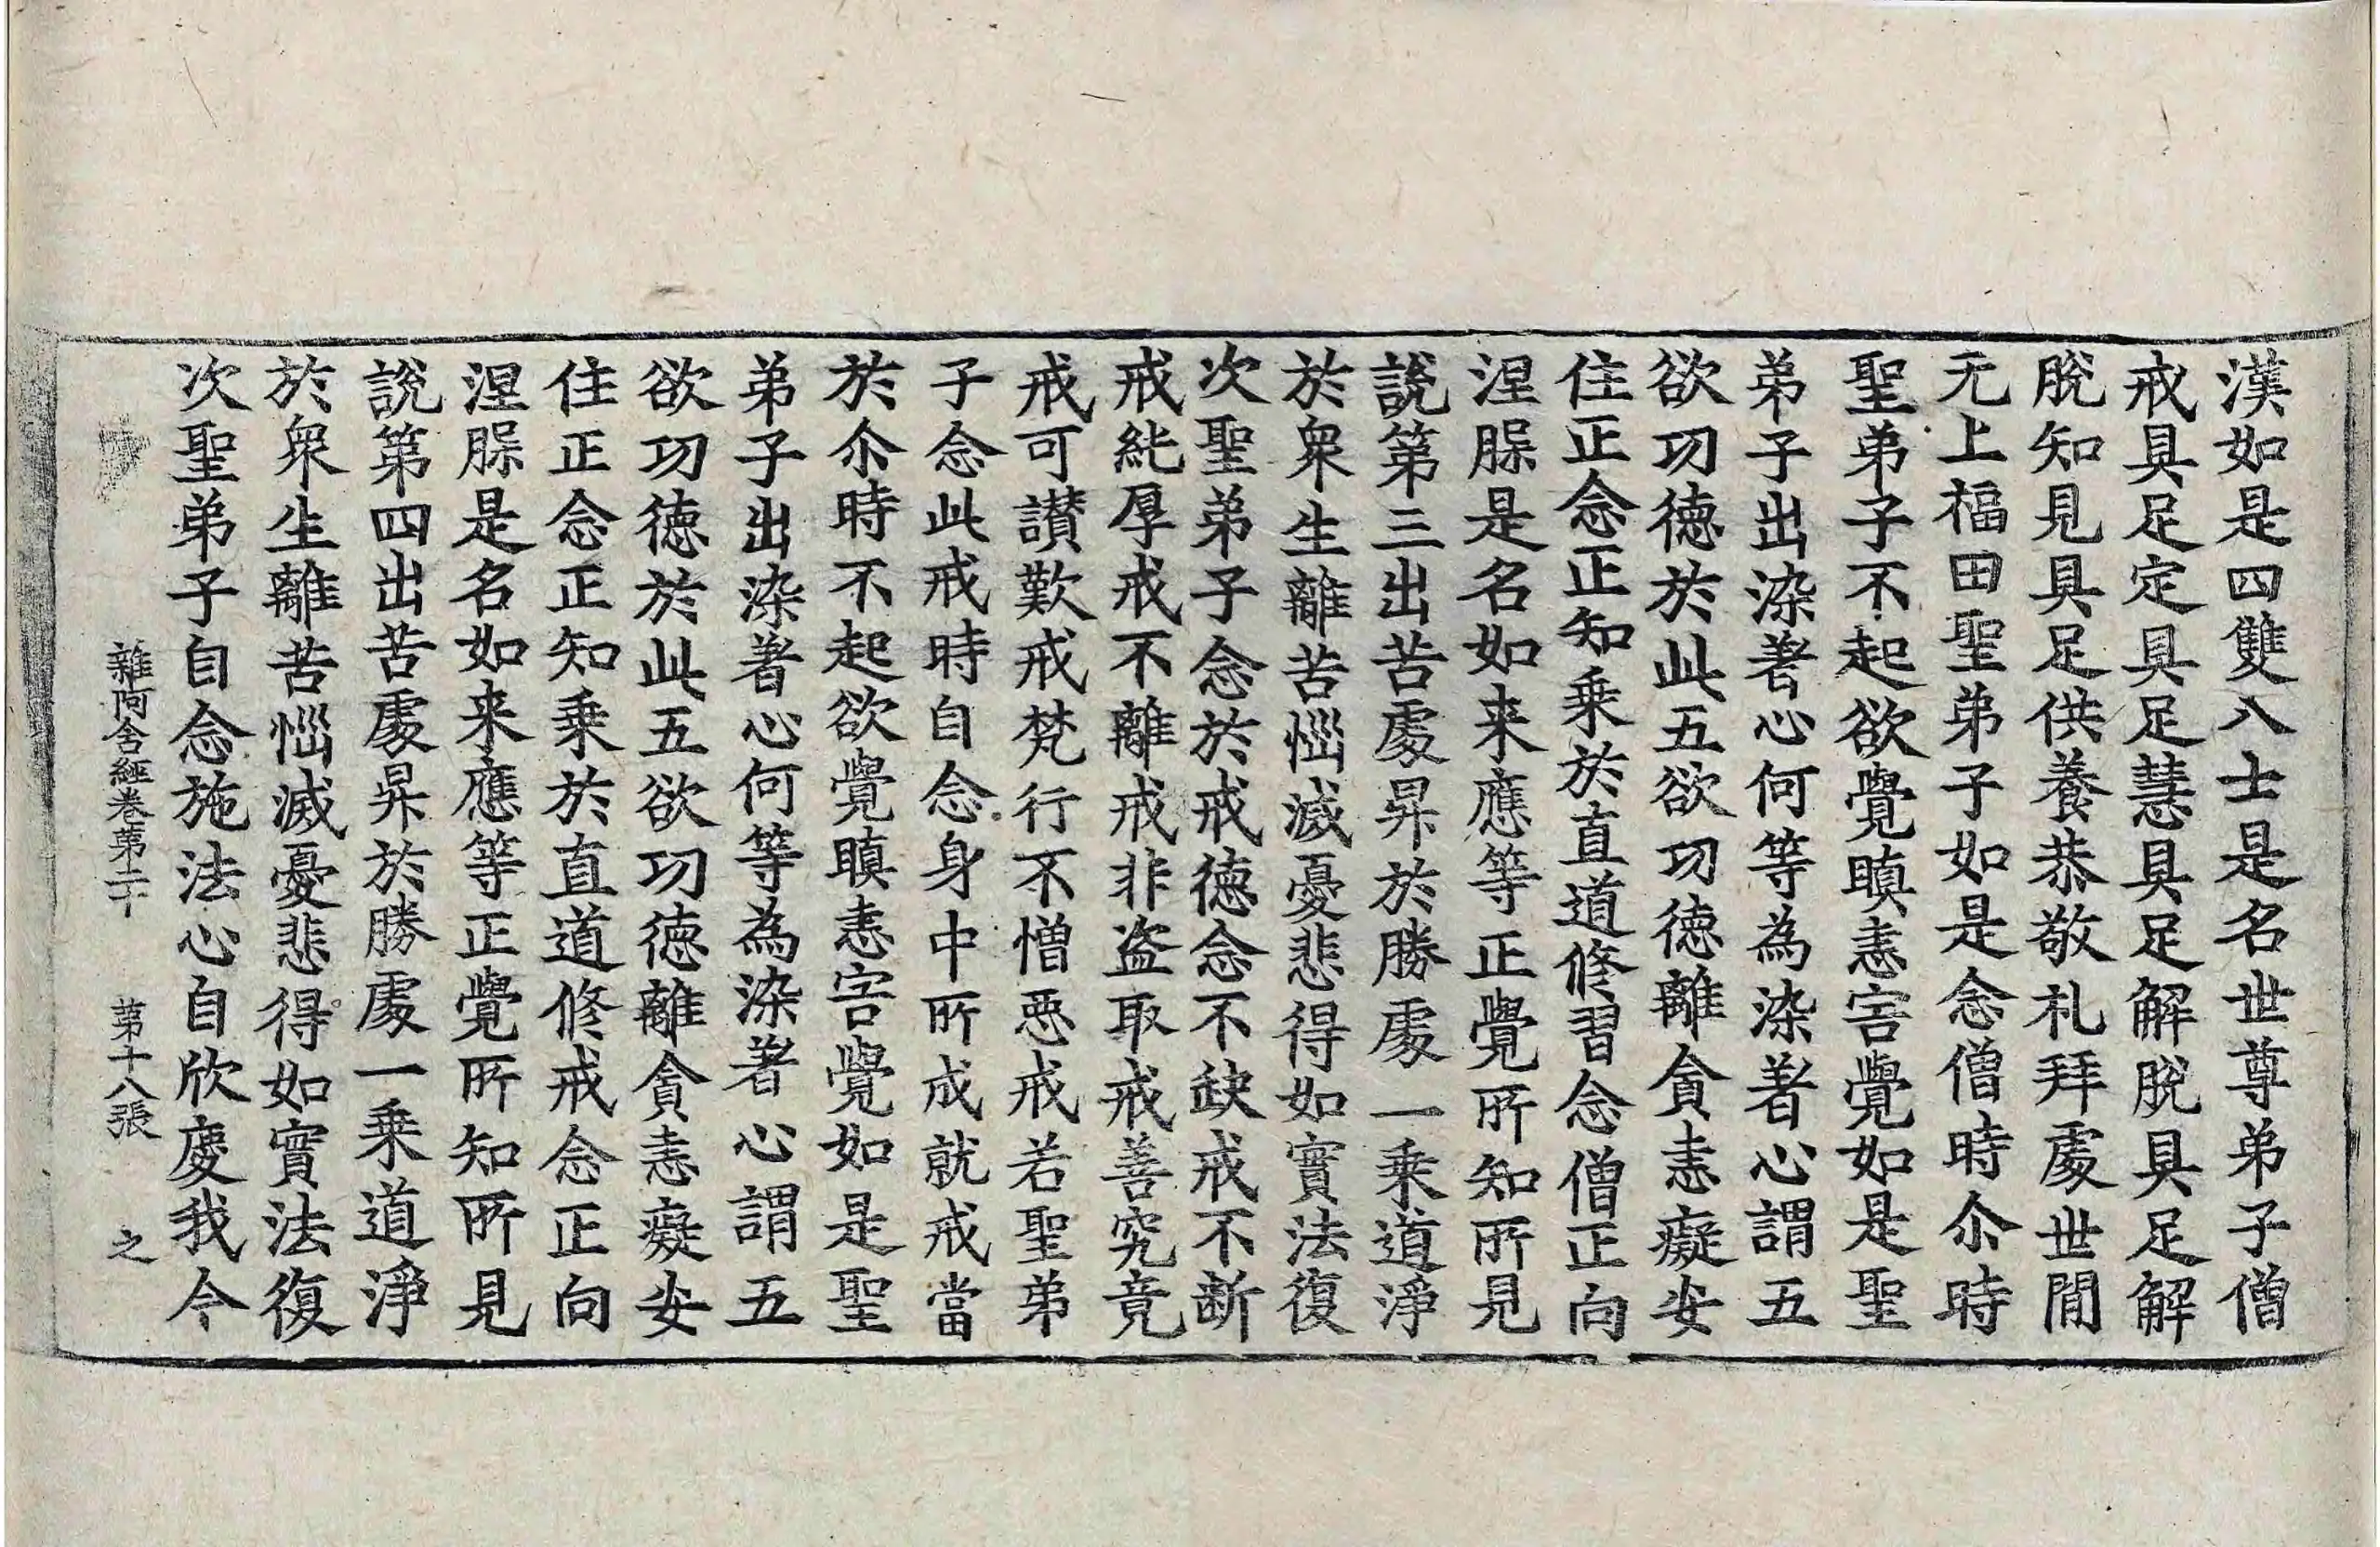 漢如是四雙八士是名世尊弟子僧
戒具足定具足慧具足解脫具足解
脫知見具足供養恭敬礼拜處世間
无上福田聖弟子如是念僧時尒時
聖弟子不起欲覺瞋恚害覺如是聖
弟子出染著心何等為染著心謂五
欲功德於此五欲功德離貪恚癡安
住正念正知乗於直道修習念僧正向
涅槃是名如来應等正覺所知所見
說第三出苦處昇於勝處一乗道淨
於衆生離苦惱滅憂悲得如實法復
次聖弟子念於戒德念不缺戒不斷
戒純厚戒不離戒非盜取戒善究竟
戒可讃歎戒梵行不憎惡戒若聖弟
子念此戒時自念身中所成就戒當
於尒時不起欲覺瞋恚害覺如是聖
弟子出染著心何等為染著心謂五
欲功德於此五欲功德離貪恚癡安
住正念正知乗於直道修戒念正向
涅槃是名如来應等正覺所知所見
說第四出苦處昇於勝處一乗道淨
於衆生離苦惱滅憂悲得如實法復
次聖弟子自念施法心自欣慶我今
雜阿含經卷第二十 第十八張 之